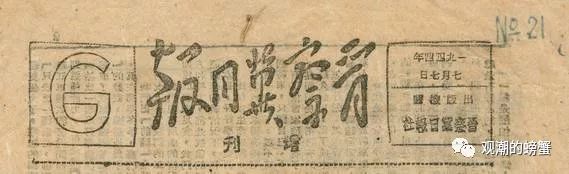 № 21
晋察冀日报
增刊
一九四四年
七月七日
晋察冀日報社
观潮的螃蟹